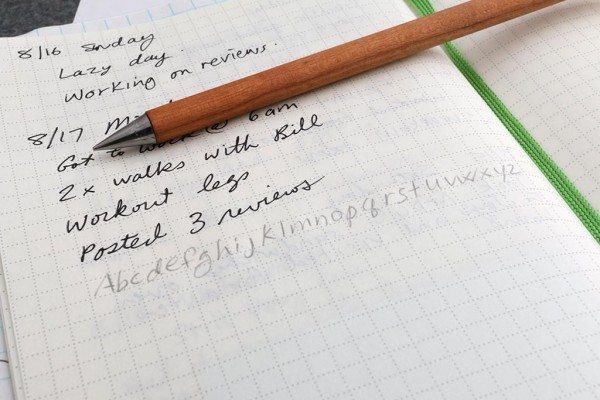 8/16 Sunday
Lazy day.
Working on reviews.
8/17
Got to work @ 6am
2x walks with Bill
Workout legs
Posted 3 reviews
Abcdefghijklmnopqrstuvwxyz